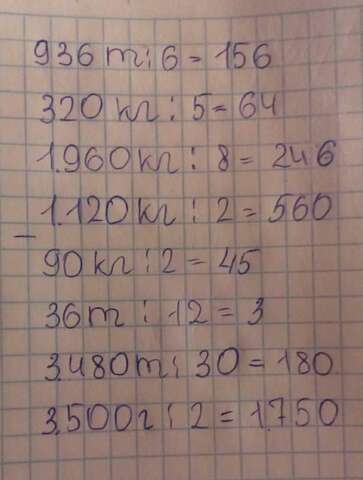 936 т : 6 = 156
320 кг : 5 = 64
1.960 кг : 8 = 246
1.120 кг : 2 = 560
90 кг : 2 = 45
36 т : 12 = 3
3.480 т : 30 = 180
3.500 г : 2 = 1.750